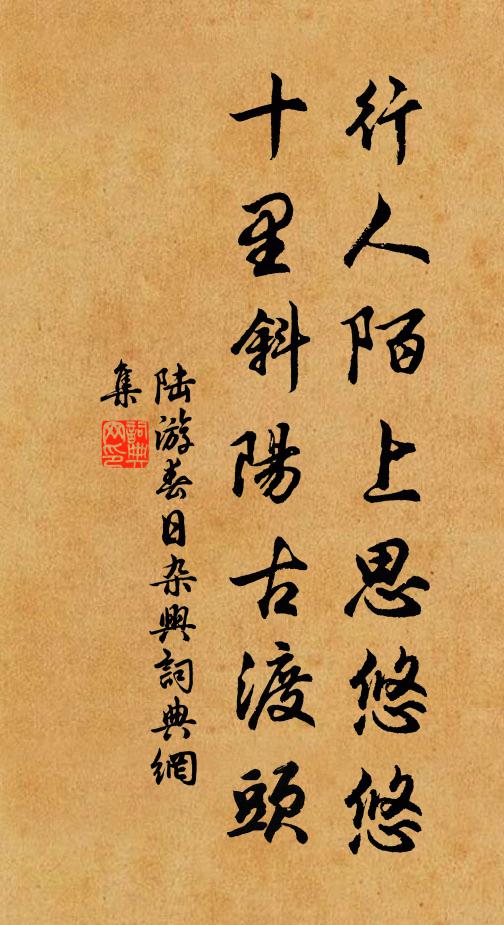 行人陌上思悠悠
十里斜陽古渡頭
陆游春日杂興詞典網
集
詞典
网印